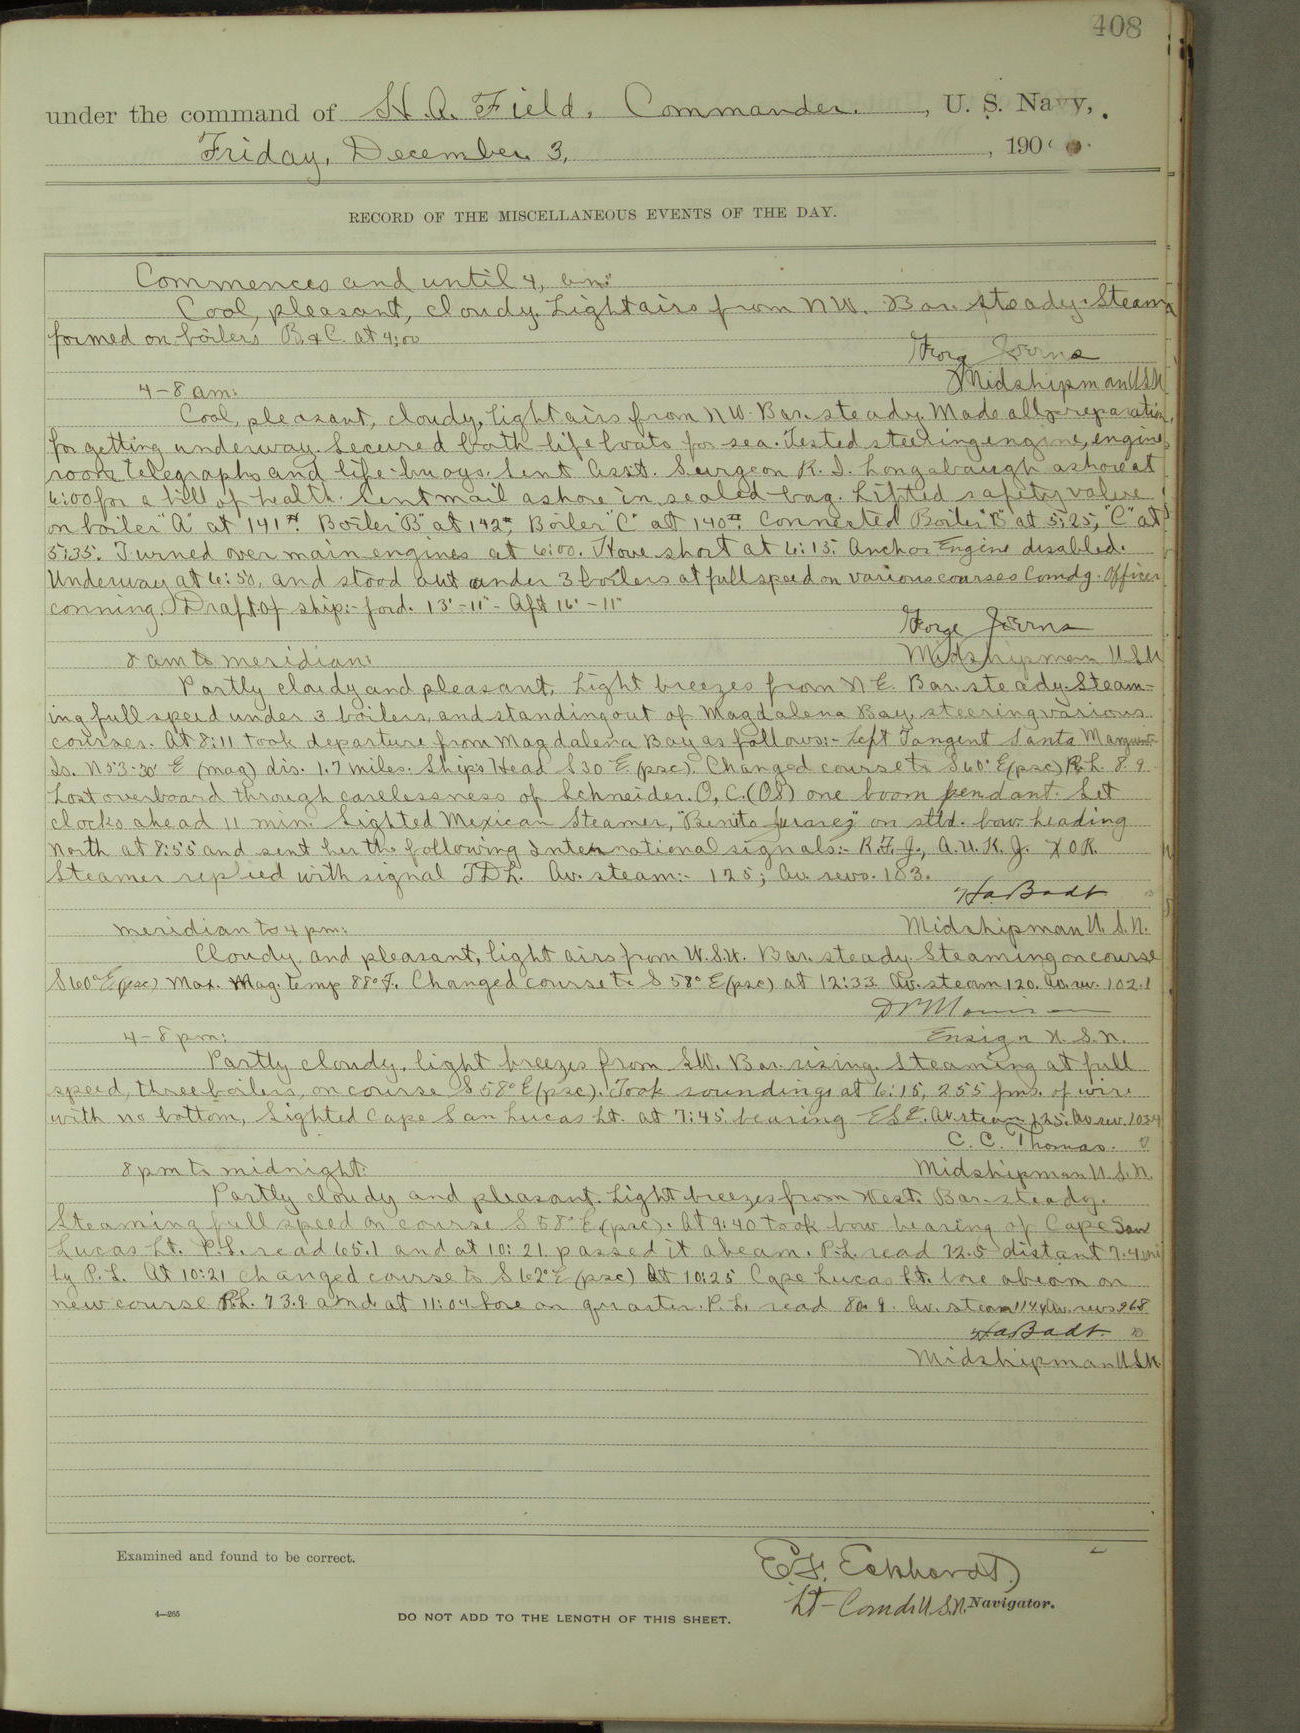 408
under the command of H. A. Field, Commander. , U. S. Navy,
Friday, December 3, , 190
RECORD OF THE MISCELLANEOUS EVENTS OF THE DAY.
Commences and until 4, am:
Cool, pleasant, cloudy. Light airs from NW. Bar. steady. Steam
formed on boilers B. & C. at 4:00
Midshipman U.S.N
4-8 am:
Cool, pleasant, cloudy, light airs from NW. Bar. steady. Made all preparation
for getting underway. Secured both life boats for sea. Tested steering engine, engine
room telegraphs and life buoys. Sent Asst. Surgeon R. I. Longabaugh ashore at
6:00 for a bill of health. Sent mail ashore in sealed bag. Lifted safety valve
on boiler "A" at 141#. Boiler "B" at 142#, Boiler "C" att 140#. Connected Boiler "B" at 5:25, "C" at
5:35. Turned over main engines at 6:00. Hove short at 6:15. Anchor Engine disabled.
Underway at 6:50, and stood out under 3 boilers at full speed on various courses Comdg. Officer
conning. Draft of ship:- ford. 13'-11" - Aft 16'-11"
Midshipman U.S.N
8 am to meridian:
Partly cloudy and pleasant. Light breezes from N.E. Bar. steady. Steam-
ing full speed under 3 boilers, and standing out of Magdalena Bay, steering various
courses. At 8:11 took departure from Magdalena Bay as follows:- Left Tangent Santa
Is. N 53-30' E (mag) dis. 1.7 miles. Ship's Head S 30 E. (psc). Changed course to S 60° E (psc) P.L. 8.9
Lost overboard through carelessness of Schneider. O, C. (OS) one boom pendant. Set
clocks ahead 11 min. Sighted Mexican Steamer, "Benito Juarez" on stbd. bow heading
North at 8:55 and sent her the following International signals:- R.F.J., A.U.K.J. X O R.
Steamer replied with signal T D L. Av. steam:- 125; Av. revo. 103.
Ha Badt
Midshipman U.S.N.
meridian to 4 pm:
Cloudy and pleasant, light airs from W.S.W. Bar. steady. Steaming on course
S 60° E (psc) Max. Mag. temp 88° F. Changed course to S 58° E (psc) at 12:33 Av. steam 120. Av. rev. 102.1
Ensign U.S.N.
4-8 pm:
Partly cloudy, light breezes from SW. Bar. rising. Steaming at full
speed, three boilers, on course S 58° E (psc). Took soundings at 6:15, 255 fms. of wire
with no bottom, Sighted Cape San Lucas Lt. at 7:45 bearing ESE. Av. steam 125. Av rev. 103.4
C. C. Thomas.
Midshipman U.S.N.
8 pm to midnight:
Partly cloudy and pleasant. Light breezes from West. Bar. steady.
Steaming full speed on course S 58° E (psc). At 9:40 took bow bearing of Cape San
Lucas Lt. P.L. read 65.1 and at 10:21 passed it abeam. P.L. read 72.5 distant 7.4 mi
by P.L. At 10:21 changed course to S 62° E (psc) At 10:25 Cape Lucas Lt. bore abeam on
new course P.L. 73.9 and at 11:04 bore on quarter. P.L. read 80.9. Av. steam 114 Av. revs 96.8
Ha Badt
Midshipman U.S.N.
Examined and found to be correct.
E. F. Eckhardt
Lt-Comdr U.S.N. Navigator.
4—265
DO NOT ADD TO THE LENGTH OF THIS SHEET.